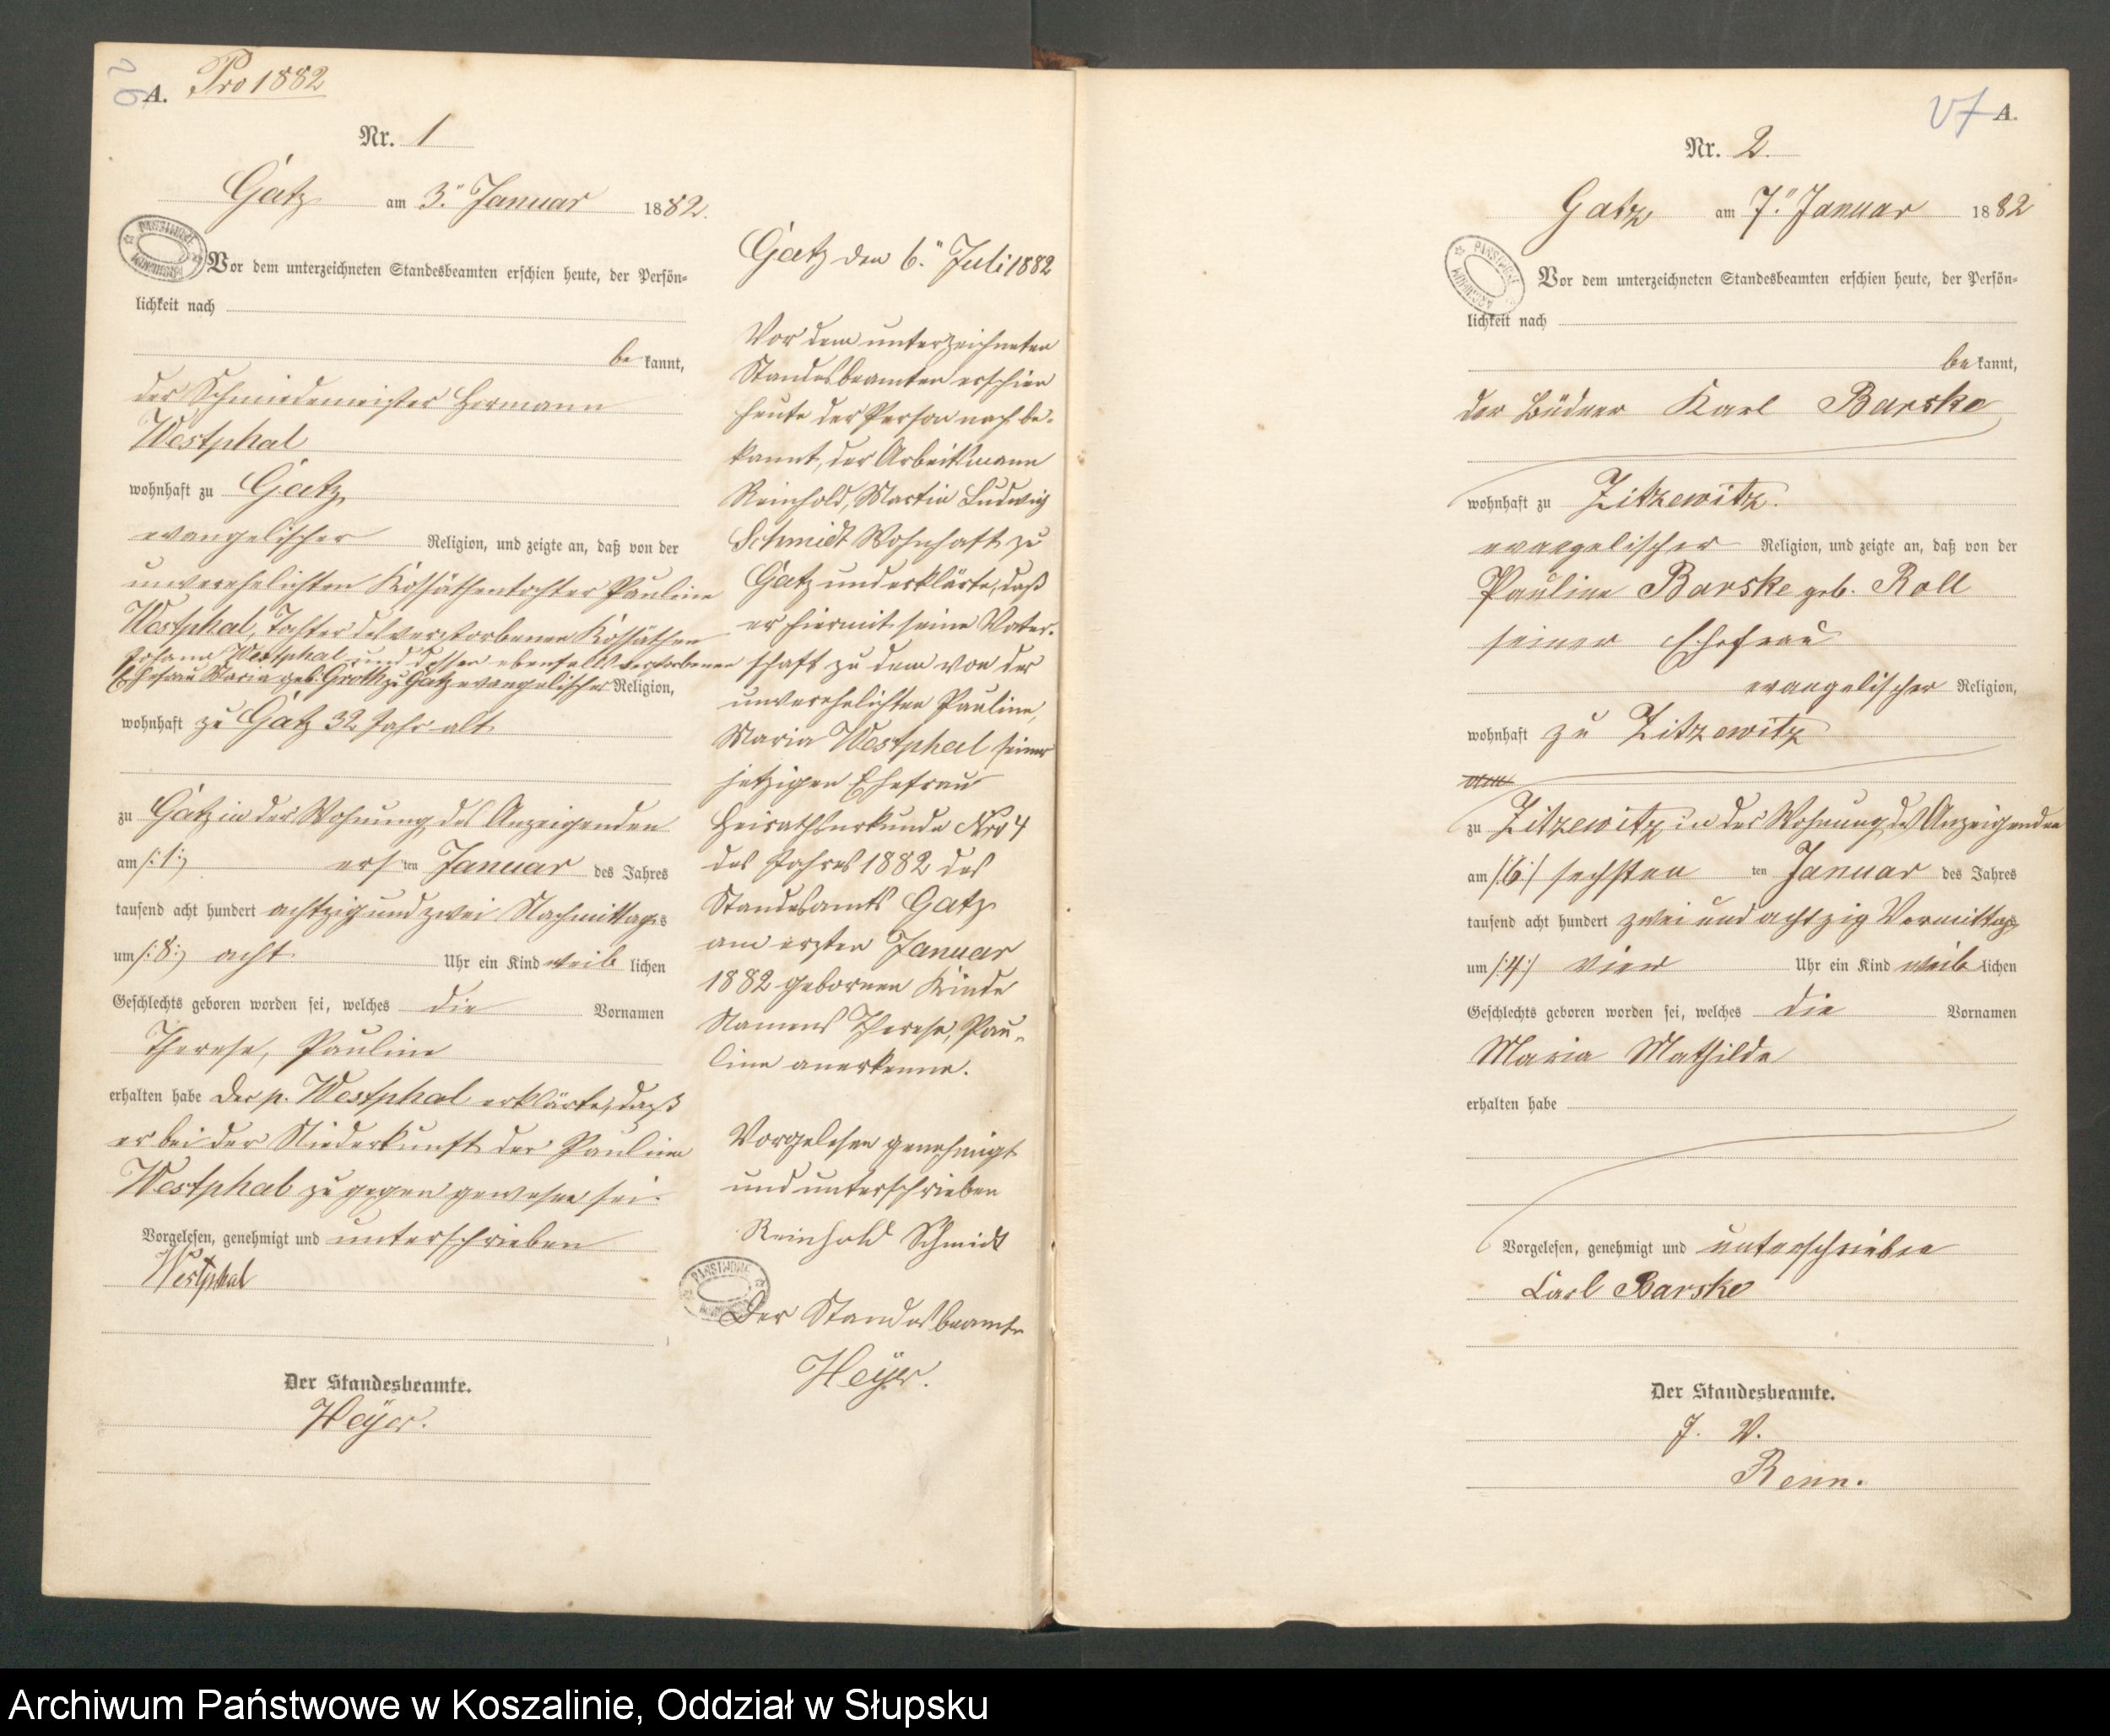 A. Pro 1882
Nr. 1
Gatz am 3. Januar 1882.
Vor dem unterzeichneten Standesbeamten erschien heute, der Persön-
lichkeit nach
be kannt,
der Schmiedemeister Hermann
Westphal
wohnhaft zu Gatz
evangelischer Religion, und zeigte an, daß von der
unverehelichten Kossäthentochter Pauline
Westphal, Tochter des verstorbenen Kossäthen
Johann Westphal und dessen ebenfalls verstorbenen
Ehefrau Maria geb. Groth zu Gatz evangelischer Religion,
wohnhaft zu Gatz 32 Jahr alt
zu Gatz in der Wohnung des Anzeigenden
am /:1:/ ersten Januar des Jahres
tausend acht hundert achtzig und zwei Nachmittags
um /:8:/ acht Uhr ein Kind weiblichen
Geschlechts geboren worden sei, welches die Vornamen
Therese, Pauline
erhalten habe Der p. Westphal erklärte, daß
er bei der Niederkunft der Pauline
Westphal zugegen gewesen sei.
Vorgelesen, genehmigt und unterschrieben
Westphal
Der Standesbeamte.
Heyer.
Gatz den 6. Juli 1882
Vor dem unterzeichneten
Standesbeamten erschien
heute der Person nach be-
kannt, der Arbeitsmann
Reinhold, Martin Ludwig
Schmidt Wohnhaft zu
Gatz und erklärte, daß
er hiermit seine Vater-
schaft zu dem von der
unverehelichten Pauline,
Maria Westphal seiner
jetzigen Ehefrau
Heirathsurkunde Nro 4
des Jahres 1882 des
Standesamts Gatz
am ersten Januar
1882 gebornen Kinde
Namens Therese, Pau-
line anerkenne.
Vorgelesen genehmigt
und unterschrieben
Reinhold Schmidt
Der Standesbeamte
Heyer.
A.
Nr. 2.
Gatz am 7. Januar 1882
Vor dem unterzeichneten Standesbeamten erschien heute, der Persön-
lichkeit nach
be kannt,
der Büdner Karl Barske
wohnhaft zu Zitzewitz.
evangelischer Religion, und zeigte an, daß von der
Pauline Barske geb. Roll
seiner Ehefrau
evangelischer Religion,
wohnhaft zu Zitzewitz
zu Zitzewitz in der Wohnung des Anzeigenden
am /:6:/ sechsten ten Januar des Jahres
tausend acht hundert zwei und achtzig Vormittags
um /:4:/ vier Uhr ein Kind weiblichen
Geschlechts geboren worden sei, welches die Vornamen
Maria Mathilde
erhalten habe
Vorgelesen, genehmigt und unterschrieben
Carl Barske
Der Standesbeamte.
J. V.
Renn.
Archiwum Państwowe w Koszalinie, Oddział w Słupsku